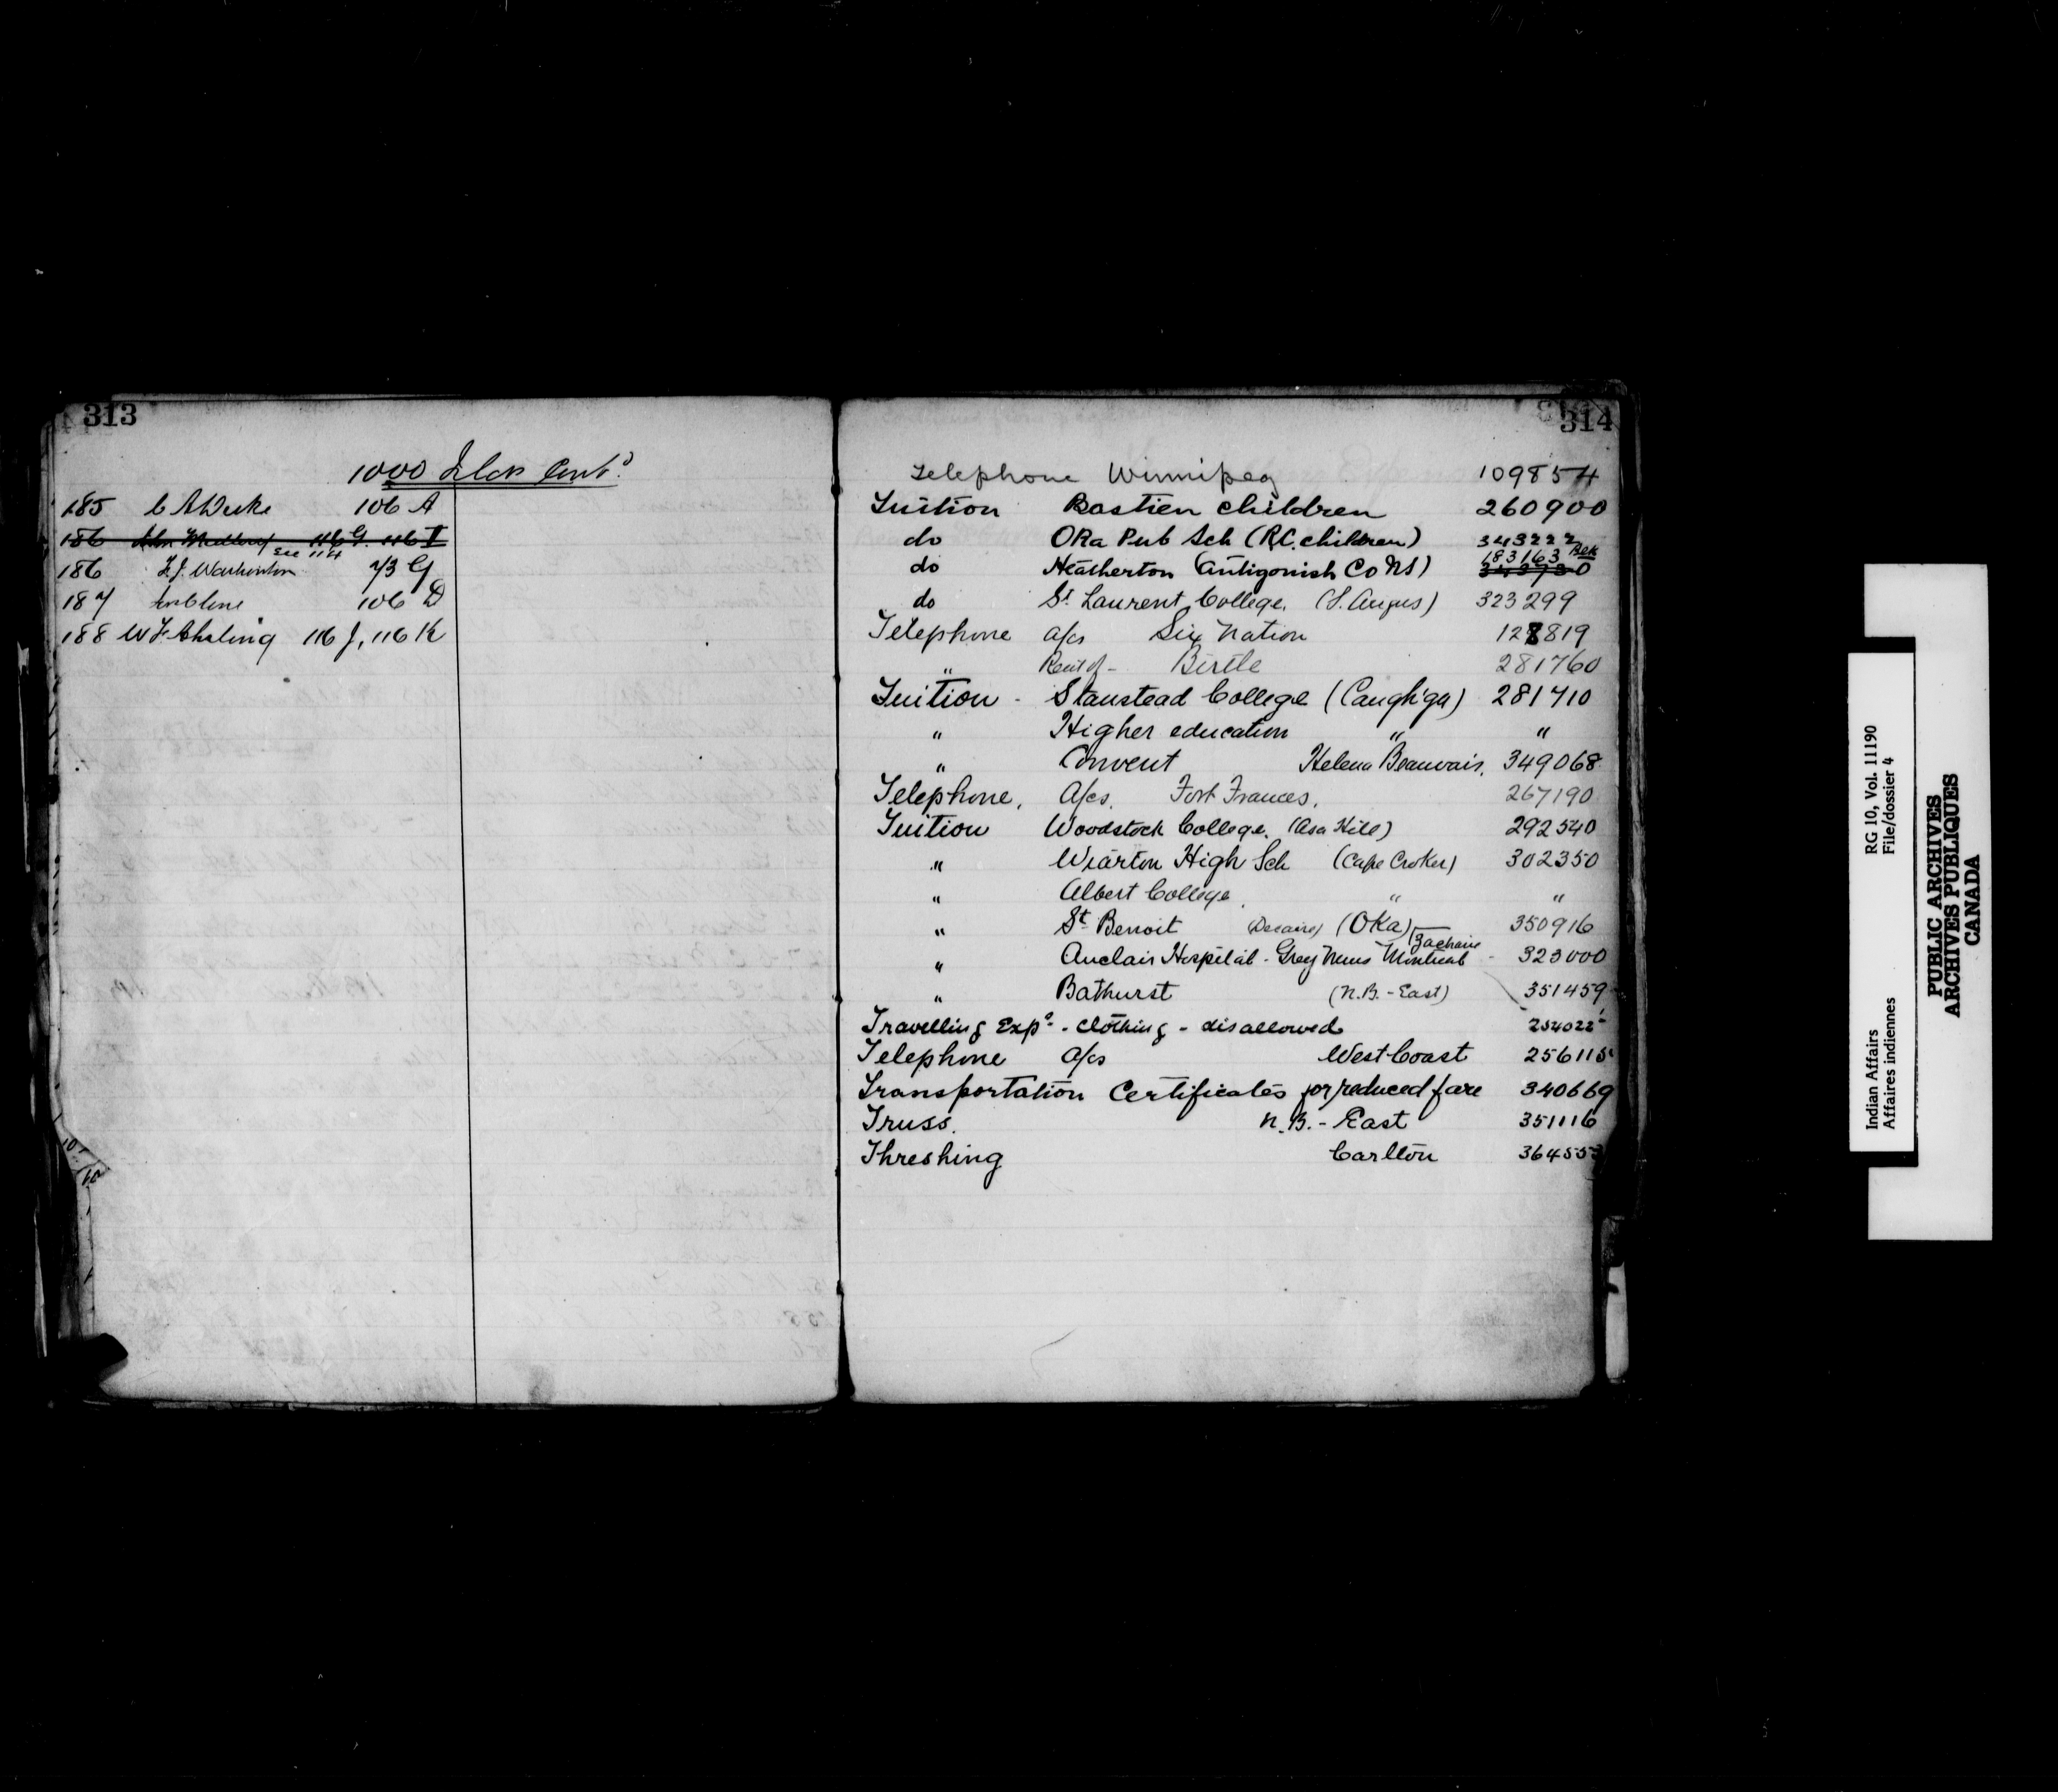 313
1000 Islds Cont'd
185 C A Weeks 106 A
186 116 G. 116 I
see 114
186 F. J. Warburton 73 G
187 106 D
188 W F 116 J, 116 K
314
Telephone Winnipeg 109854
Tuition Bastien children 260900
do Oka Pub Sch (R.C. children) 343222
do Heatherton (Antigonish Co NS) 183163
do St Laurent College. (S. Angus) 323299
Telephone a/cs Six Nation 128819
" Rent of - Birtle 281760
Tuition - Stanstead College (Caugh'ga) 281710
" Higher education " "
" Convent Helena Beauvais. 349068
Telephone, a/cs. Fort Frances. 267190
Tuition Woodstock College. (Asa Hill) 292540
" Wiarton High Sch (Cape Croker) 302350
" Albert College " "
" St Benoit (Decaire) (Oka) Zacharie 350916
" Auclair Hospital - Grey Nuns Montreal - 323000
" Bathurst (N.B. - East) 351459
Travelling Exps - clothing - disallowed 254022
Telephone a/cs West Coast 256115
Transportation Certificates for reduced fare 340669
Truss. N.B. - East 351116
Threshing Carlton 364553
Indian Affairs RG 10, Vol. 11190
Affaires indiennes File/dossier 4
PUBLIC ARCHIVES
ARCHIVES PUBLIQUES
CANADA